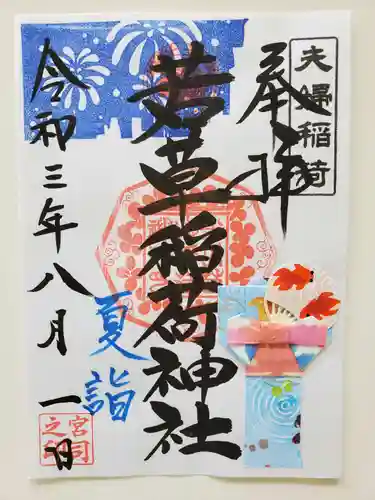 夫婦稲荷
奉拝
若草稲荷神社
夏詣
令和三年八月一日
宮司
之印